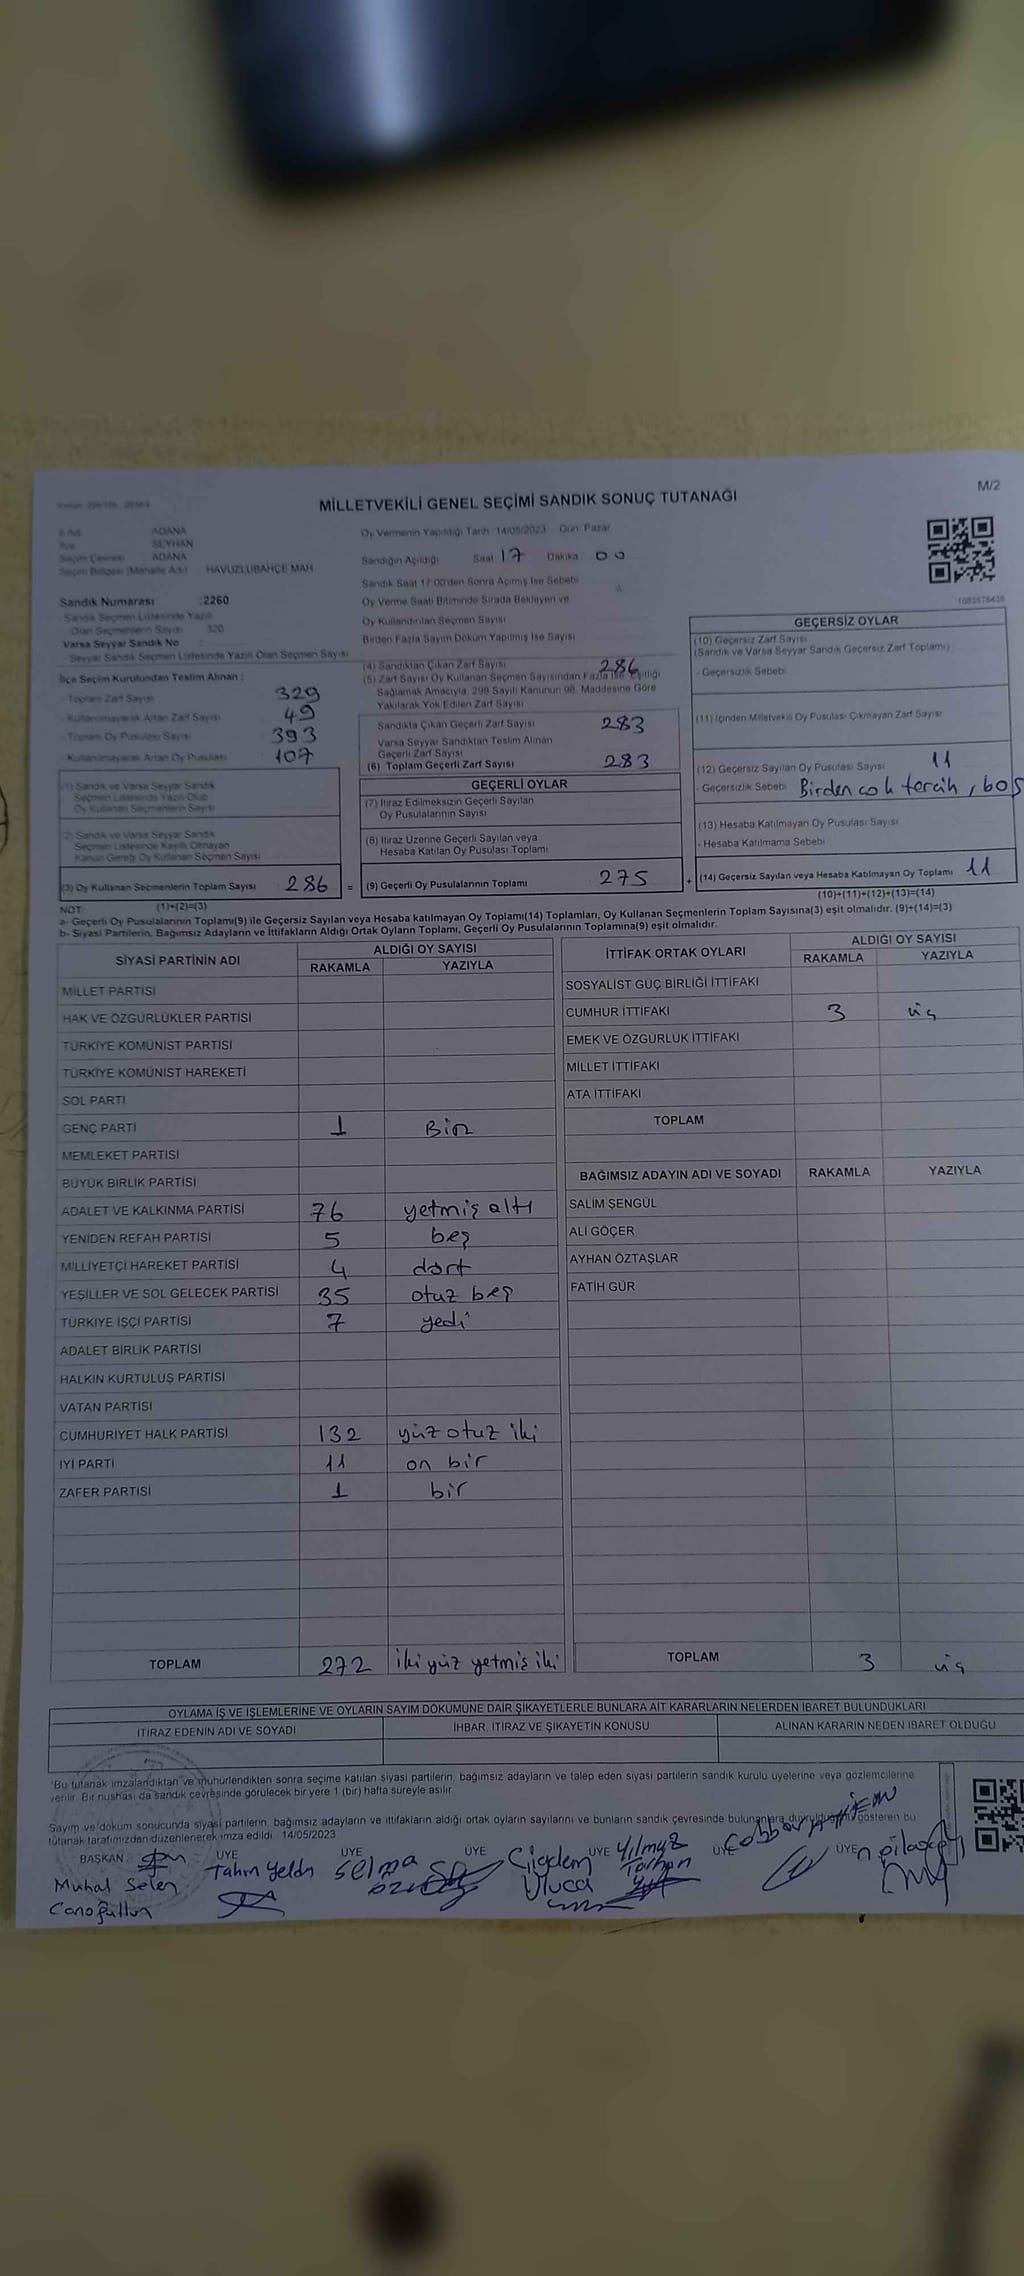 M/2
MİLLETVEKİLİ GENEL SEÇİMİ SANDIK SONUÇ TUTANAĞI
İl Adı ADANA
İlçe SEYHAN
Seçim Çevresi ADANA
Seçim Bölgesi (Mahalle Adı) : HAVUZLUBAHÇE MAH
Sandık Numarası :2260
- Sandık Seçmen Listesinde Yazılı
Olan Seçmenlerin Sayısı 320
Varsa Seyyar Sandık No :
- Seyyar Sandık Seçmen Listesinde Yazılı Olan Seçmen Sayısı
İlçe Seçim Kurulundan Teslim Alınan :
- Toplam Zarf Sayısı 329
- Kullanılmayarak Artan Zarf Sayısı 49
- Toplam Oy Pusulası Sayısı 393
- Kullanılmayarak Artan Oy Pusulası 107
(1) Sandık ve Varsa Seyyar Sandık
Seçmen Listesinde Yazılı Olup
Oy Kullanan Seçmenlerin Sayısı
(2) Sandık ve Varsa Seyyar Sandık
Seçmen Listesinde Kayıtlı Olmayan
Kanun Gereği Oy Kullanan Seçmen Sayısı
(3) Oy Kullanan Seçmenlerin Toplam Sayısı 286 =
(1)+(2)=(3)
Oy Vermenin Yapıldığı Tarih 14/05/2023 Gün: Pazar
Sandığın Açıldığı Saat 17 Dakika 00
Sandık Saat 17:00'den Sonra Açımış İse Sebebi
Oy Verme Saati Bitiminde Sırada Bekleyen ve
Oy Kullandırılan Seçmen Sayısı
Birden Fazla Sayım Döküm Yapılmış İse Sayısı
(4) Sandıktan Çıkan Zarf Sayısı 286
(5) Zarf Sayısı Oy Kullanan Seçmen Sayısından Fazla İse, Eşitliği
Sağlamak Amacıyla, 298 Sayılı Kanunun 98. Maddesine Göre
Yakılarak Yok Edilen Zarf Sayısı
Sandıkta Çıkan Geçerli Zarf Sayısı 283
Varsa Seyyar Sandıktan Teslim Alınan
Geçerli Zarf Sayısı
(6) Toplam Geçerli Zarf Sayısı 283
GEÇERLİ OYLAR
(7) İtiraz Edilmeksizin Geçerli Sayılan
Oy Pusulalarının Sayısı
(8) İtiraz Üzerine Geçerli Sayılan veya
Hesaba Katılan Oy Pusulası Toplamı
(9) Geçerli Oy Pusulalarının Toplamı 275 +
GEÇERSİZ OYLAR
(10) Geçersiz Zarf Sayısı
(Sandık ve Varsa Seyyar Sandık Geçersiz Zarf Toplamı)
- Geçersizlik Sebebi
(11) İçinden Milletvekili Oy Pusulası Çıkmayan Zarf Sayısı
(12) Geçersiz Sayılan Oy Pusulası Sayısı 11
- Geçersizlik Sebebi Birden çok tercih, boş
(13) Hesaba Katılmayan Oy Pusulası Sayısı
- Hesaba Katılmama Sebebi
(14) Geçersiz Sayılan veya Hesaba Katılmayan Oy Toplamı 11
(10)+(11)+(12)+(13)=(14)
NOT:
a- Geçerli Oy Pusulalarının Toplamı(9) ile Geçersiz Sayılan veya Hesaba katılmayan Oy Toplamı(14) Toplamları, Oy Kullanan Seçmenlerin Toplam Sayısına(3) eşit olmalıdır. (9)+(14)=(3)
b- Siyasi Partilerin, Bağımsız Adayların ve İttifakların Aldığı Ortak Oyların Toplamı, Geçerli Oy Pusulalarının Toplamına(9) eşit olmalıdır.
SİYASİ PARTİNİN ADI ALDIĞI OY SAYISI
RAKAMLA YAZIYLA
MİLLET PARTİSİ
HAK VE ÖZGÜRLÜKLER PARTİSİ
TÜRKİYE KOMÜNİST PARTİSİ
TÜRKİYE KOMÜNİST HAREKETİ
SOL PARTİ
GENÇ PARTİ 1 Bir
MEMLEKET PARTİSİ
BÜYÜK BİRLİK PARTİSİ
ADALET VE KALKINMA PARTİSİ 76 yetmiş altı
YENİDEN REFAH PARTİSİ 5 beş
MİLLİYETÇİ HAREKET PARTİSİ 4 dört
YEŞİLLER VE SOL GELECEK PARTİSİ 35 otuz beş
TÜRKİYE İŞÇİ PARTİSİ 7 yedi
ADALET BİRLİK PARTİSİ
HALKIN KURTULUŞ PARTİSİ
VATAN PARTİSİ
CUMHURİYET HALK PARTİSİ 132 yüz otuz iki
İYİ PARTİ 11 on bir
ZAFER PARTİSİ 1 bir
TOPLAM 272 iki yüz yetmiş iki
İTTİFAK ORTAK OYLARI ALDIĞI OY SAYISI
RAKAMLA YAZIYLA
SOSYALİST GÜÇ BİRLİĞİ İTTİFAKI
CUMHUR İTTİFAKI 3 üç
EMEK VE ÖZGÜRLÜK İTTİFAKI
MİLLET İTTİFAKI
ATA İTTİFAKI
TOPLAM
BAĞIMSIZ ADAYIN ADI VE SOYADI RAKAMLA YAZIYLA
SALİM ŞENGÜL
ALİ GÖÇER
AYHAN ÖZTAŞLAR
FATİH GÜR
TOPLAM 3 üç
OYLAMA İŞ VE İŞLEMLERİNE VE OYLARIN SAYIM DÖKÜMÜNE DAİR ŞİKAYETLERLE BUNLARA AİT KARARLARIN NELERDEN İBARET BULUNDUKLARI
İTİRAZ EDENİN ADI VE SOYADI İHBAR, İTİRAZ VE ŞİKAYETİN KONUSU ALINAN KARARIN NEDEN İBARET OLDUĞU
*Bu tutanak imzalandıktan ve mühürlendikten sonra seçime katılan siyasi partilerin, bağımsız adayların ve talep eden siyasi partilerin sandık kurulu üyelerine veya gözlemcilerine
verilir. Bir nushası da sandık çevresinde görülecek bir yere 1 (bir) hafta süreyle asılır.
Sayım ve döküm sonucunda siyasi partilerin, bağımsız adayların ve ittifakların aldığı ortak oyların sayılarını ve bunların sandık çevresinde bulunanlara duyrulduğunu gösteren bu
tutanak tarafımızdan düzenlenerek imza edildi. 14/05/2023
BAŞKAN ÜYE ÜYE ÜYE ÜYE ÜYE ÜYE
Tahir Selma Çiğdem Yılmaz
Uluca Tarhan